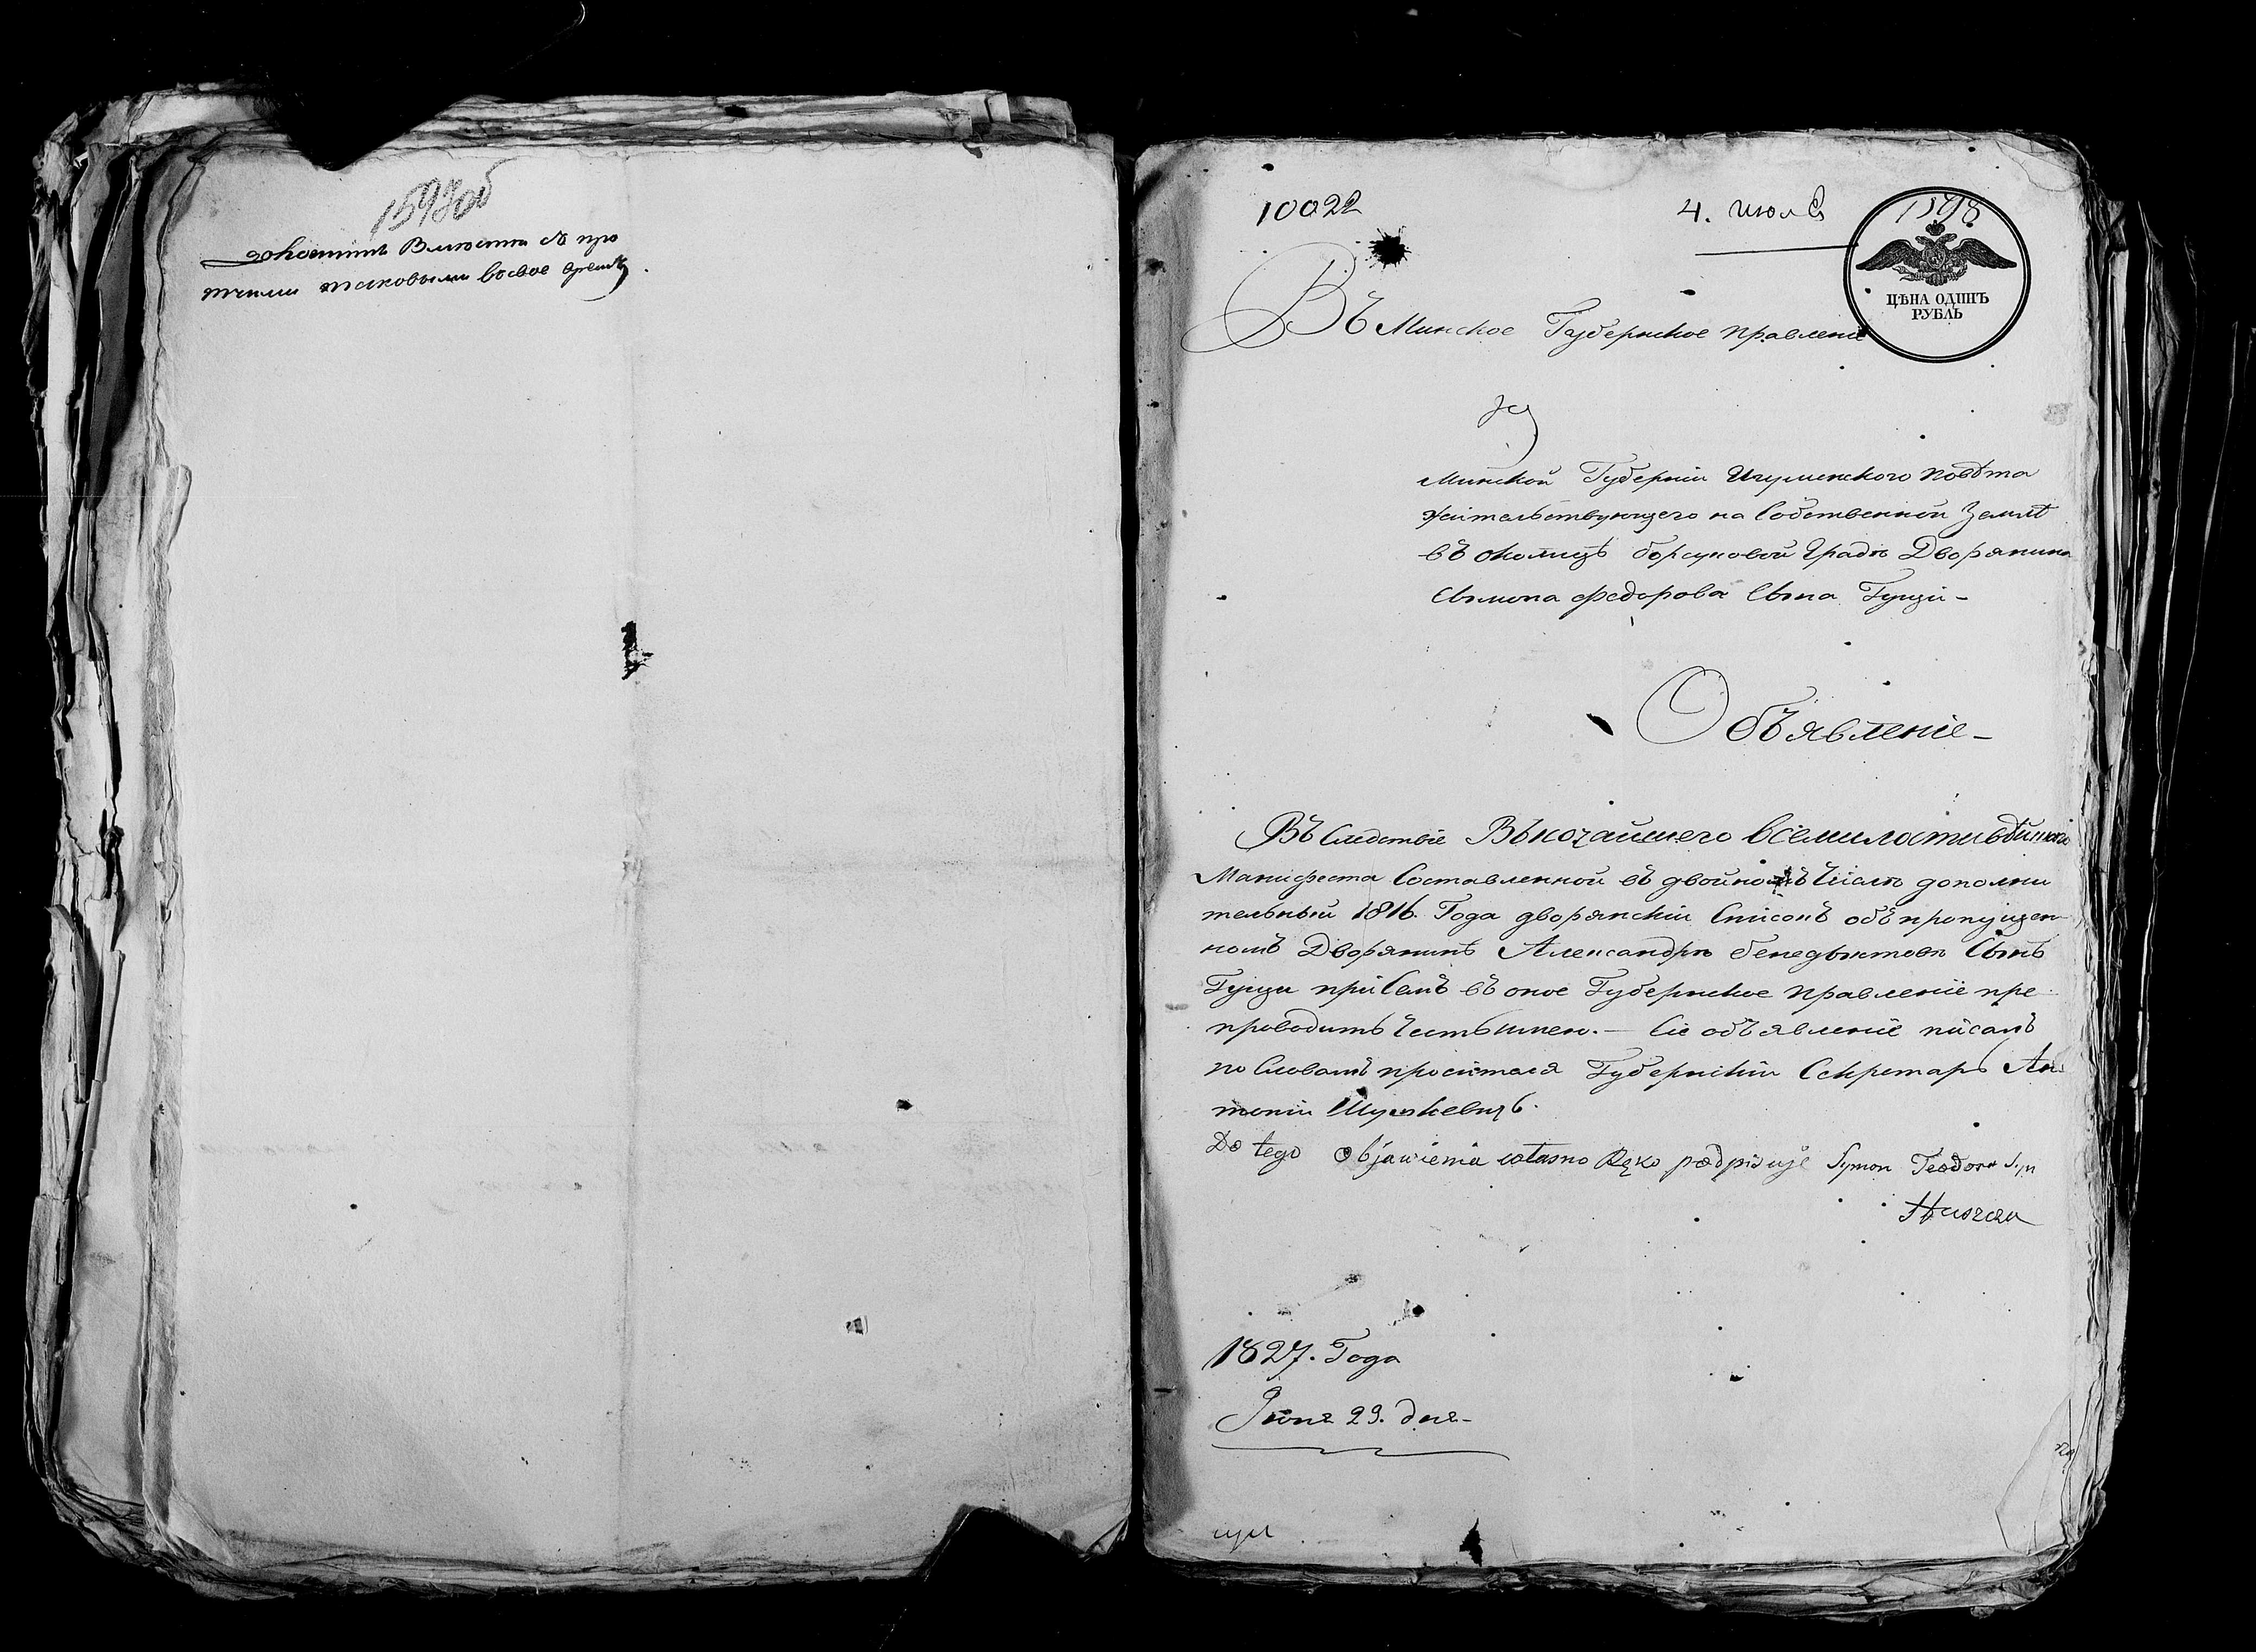 1593об
доложить вместе съ про
тчими таковыми во свое время
10022
4. июля
1598
ЦѢНА ОДИНЪ
РУБЛЬ
Въ Минское Губернское правленіе
Минской Губерніи Игуменского повѣта
жительствующего на собственной землѣ
въ околицѣ борсуковой Градѣ Дворянина
Сымона федорова сына Гущи -
Объявленіе -
Въ следствіе Высочайшего всемилостивѣйшего
Манифеста составленной въ двойномъ числѣ дополни
тельный 1816. Года дворянскіи списокъ объ пропущен
номъ Дворянинѣ Александрѣ бенедыктовѣ сынѣ
Гущи при семъ въ оное Губернское правленіе пре
проводить честь имею. - Сіе объявленіе писалъ
по словамъ просителя Губернскіи Секретарь Ан
тоніи
Do tego objawienia własno Ręko podpisuje Symon Teodora Syn
Huszcza
1827. Года
Іюня 29. дня -